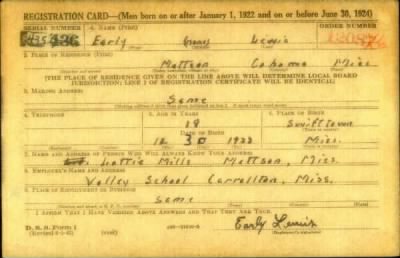 REGISTRATION CARD—(Men born on or after January 1, 1922 and on or before June 30, 1924)
SERIAL NUMBER 1. NAME (Print) ORDER NUMBER
436 Early Lewis
2. PLACE OF RESIDENCE (Print)
Mattson Cohoma Miss
[THE PLACE OF RESIDENCE GIVEN ON THE LINE ABOVE WILL DETERMINE LOCAL BOARD
JURISDICTION; LINE 2 OF REGISTRATION CERTIFICATE WILL BE IDENTICAL]
3. MAILING ADDRESS
Same
4. TELEPHONE 5. AGE IN YEARS 6. PLACE OF BIRTH
18 Swifttown
DATE OF BIRTH
12 30 Miss.
7. NAME AND ADDRESS OF PERSON WHO WILL ALWAYS KNOW YOUR ADDRESS
Lottie Mills Mattson, Miss.
8. EMPLOYER'S NAME AND ADDRESS
Valley School Carrollton, Miss.
9. PLACE OF EMPLOYMENT OR BUSINESS
Same
I AFFIRM THAT I HAVE VERIFIED ABOVE ANSWERS AND THAT THEY ARE TRUE.
D. S. S. Form 1
Early Lewis